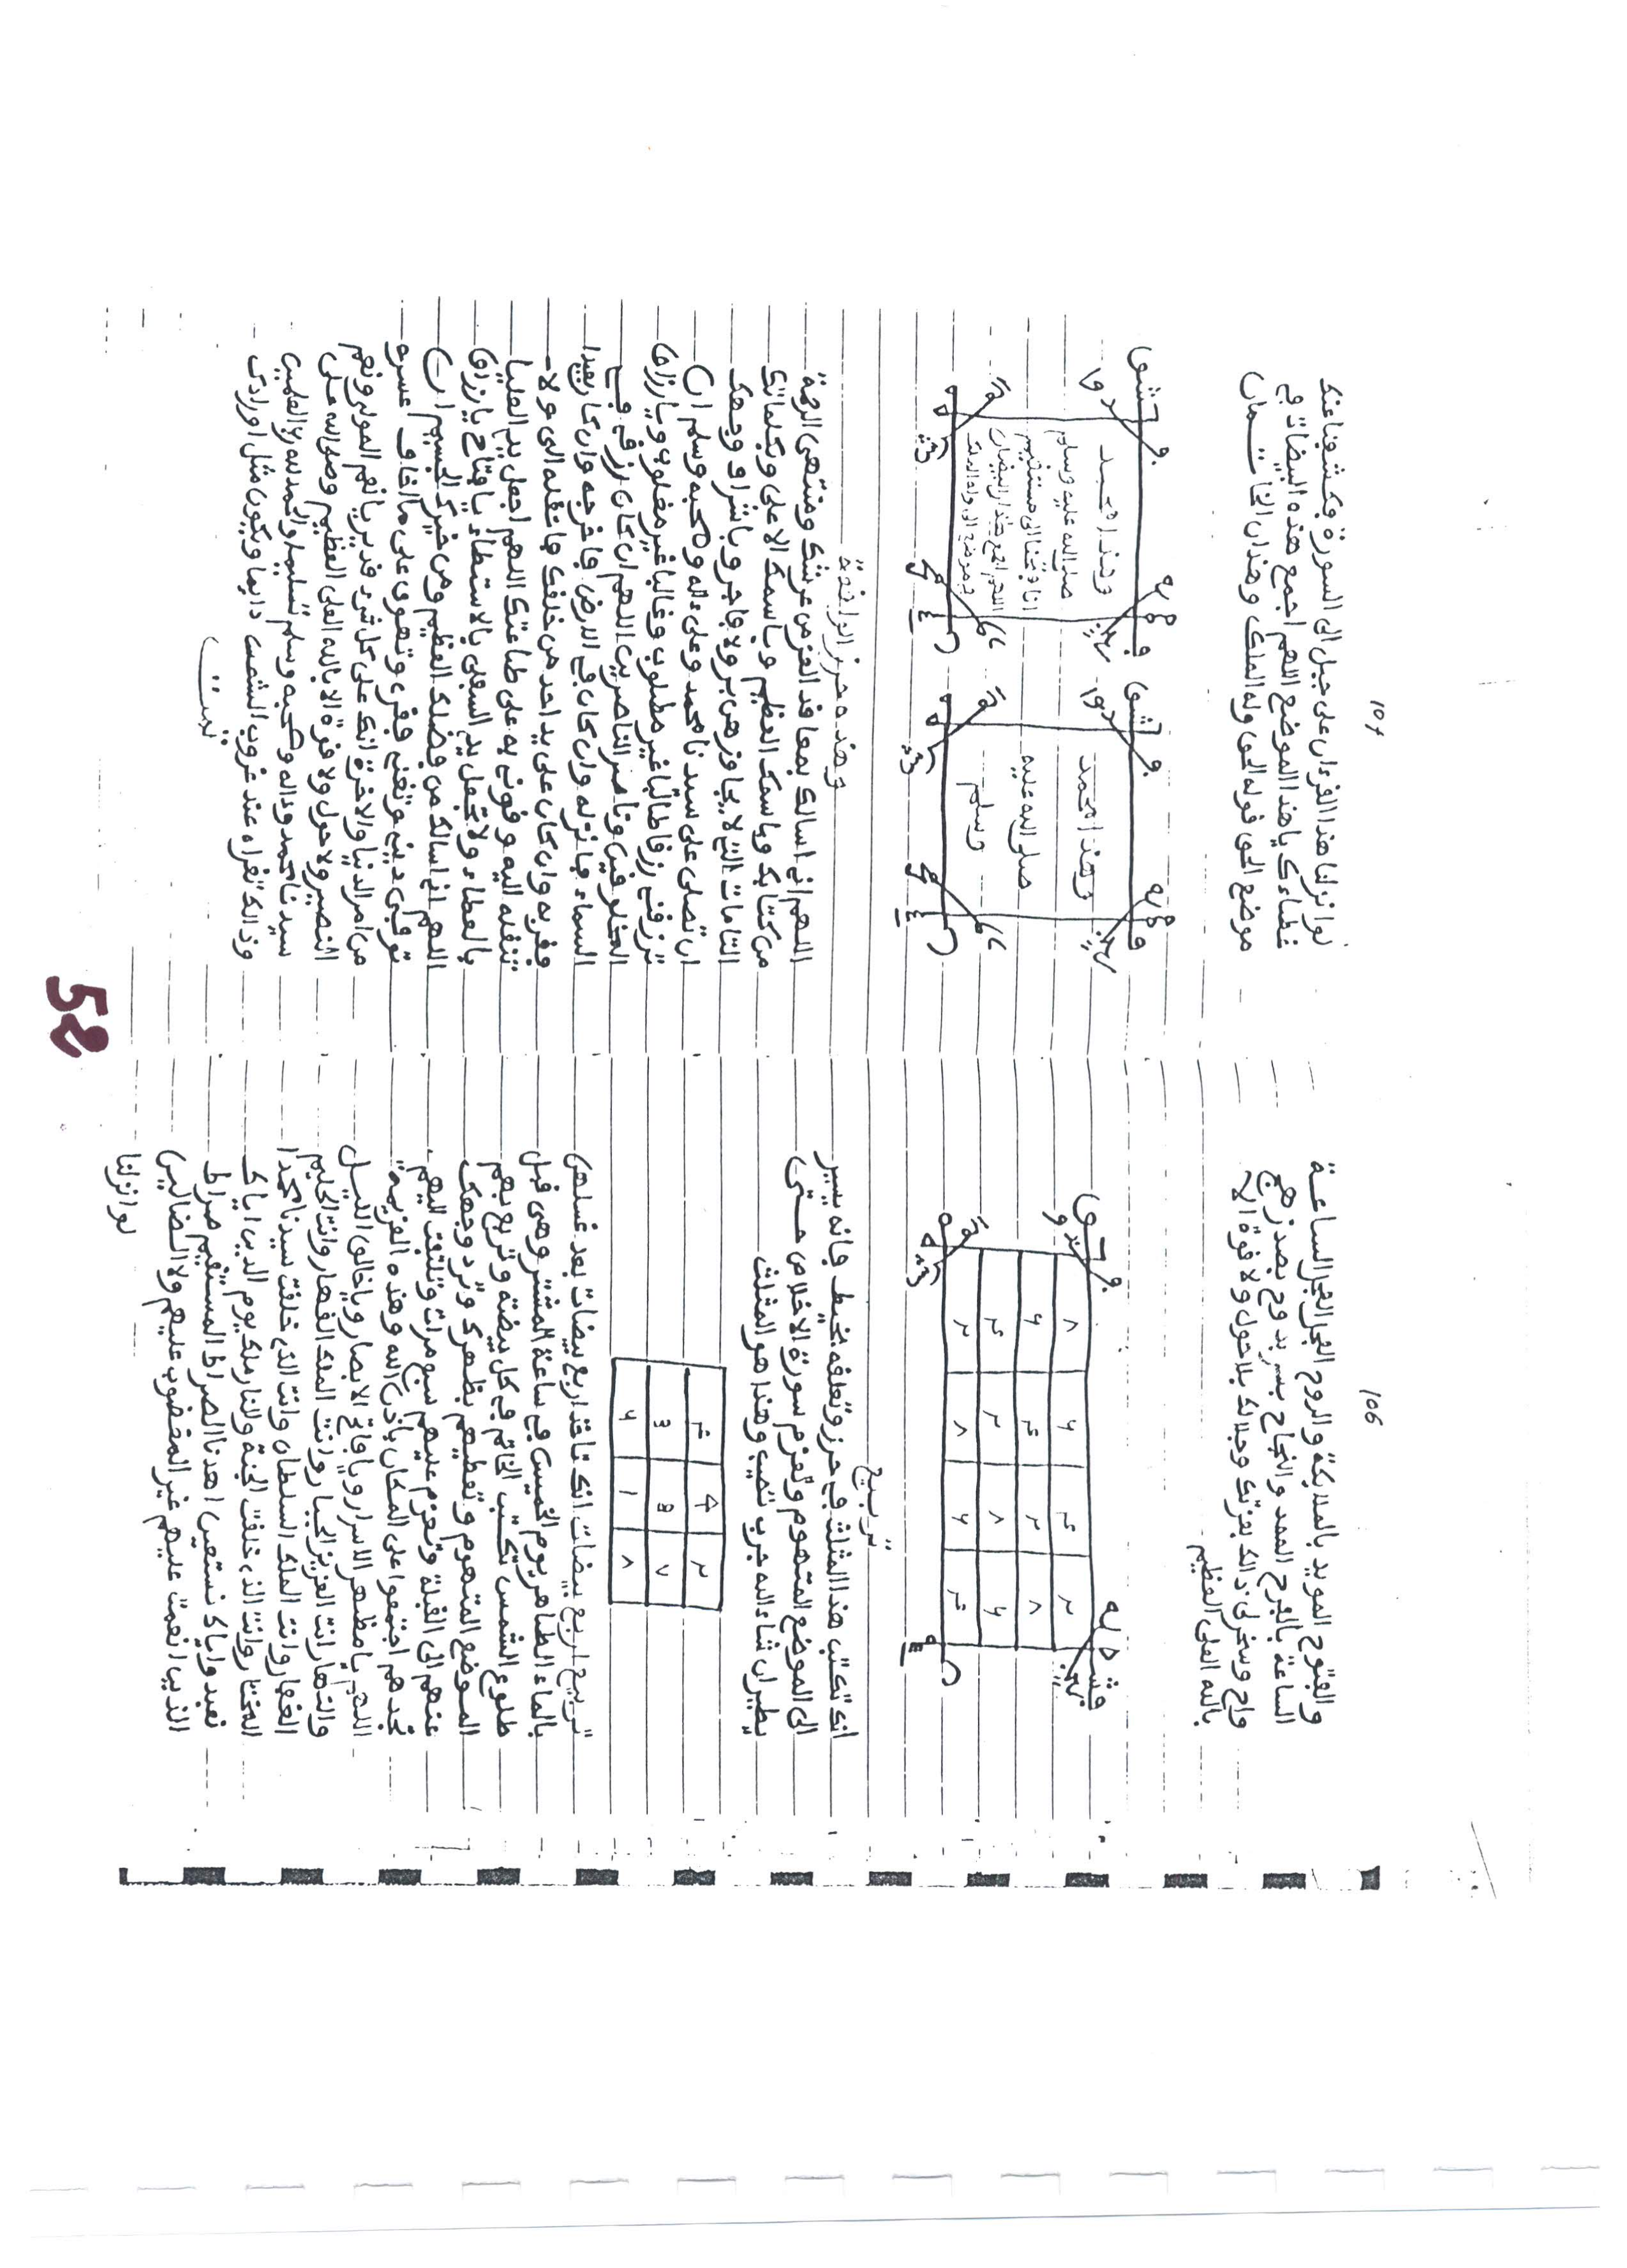 106
والفتوح المويد بالملايكة والروح العجل العجل الساعة
الساعة بالفرح الممد والنجاح بسر بدوح بصد زهج
واح وسخر لى ذالك بعزتك وجلالك بلا حول ولا قوة الا
بالله العلى العظيم
٨ ٦ ٤ ٢
٦ ٤ ٢ ٨
٤ ٢ ٨ ٦
٢ ٨ ٦ ٤
تربيع
انك تكتب هذا المثلث فى حرز وتعلقه بخيط فانه يسير
الى الموضع المتهوم وتعزم سورة الاخلاص حتى
يطير ان شاء الله جرب تصب وهذا هو المثلث
٤ ٩ ٢
٣ ٥ ٧
٦ ١ ٨
تربيع اربع بيضات انك تاخذ اربع بيضات بعد غسلهن
بالماء الطاهر يوم الخميس فى ساعة المشتر وهى قبل
طلوع الشمس تكتب الخاتم فى كل بيضة وتربعهم
الموضع المتهوم وتعطيهم بظهرك وترد وجهك
عنهم الى القبلة وتعزم عليهم سبع مرات وتلتفت اليهم
تجدهم اجتمعوا على المكان باذن الله وهذه العزيمة
اللهم يا مظهر الاسرار ويا فاتح الابصار ويا خالق الليل
والنهار انت العزيز الجبار وانت الملك القهار وانت الحليم
الغفار وانت الملك السلطان وانت الذى خلقت سيدنا محمدا
المختار وانت الذى خلقت الجنة والنار ملك يوم الدين اياك
نعبد واياك نستعين اهدنا الصراط المستقيم صراط
الذين انعمت عليهم غير المغضوب عليهم ولا الضالين
لو انزلنا
107
لو انزلنا هذا القرءان على جبل الى السورة فكشفنا عنك
غطاءك يا هذا الموضع اللهم اجمع هذه البيضات فى
موضع الحق قوله الحق وله الملك وهذان الخاتمان
وهذا محمد
صلى الله عليه
وسلم
وهذا محمد
صلى الله عليه وسلم
انا فتحنا الى مستقيم
وهذه حرز الوافدة
اللهم انى اسالك بمعاقد العز من عرشك ومنتهى الرحمة
من كتابك وباسمك العظيم وباسمك الاعلى وبكلماتك
التامات التى لا يجاوزهن بر ولا فاجر وباشراق وجهك
ان تصلى على سيدنا محمد وعلى ءاله وصحبه وسلم ان
ترزقنى رزقا طالبا غير مطلوب وغالبا غير مغلوب ويا رازق
المخلوقين ويا ناصر الناصرين اللهم ان كان رزقى فى
السماء فانزله وان كان فى الارض فاخرجه وان كان بعيدا
فقربه وان كان على يد احد من خلقك فانقله الى ولا
تنقله اليه وقونى به على طاعتك اللهم اجعل يد العليا
بالعطاء ولا تجعل يد السفلى بالاستطاء يا فتاح يا رزاق
اللهم انى اسالك من فضلك العظيم ومن خيرك الجسيم ان
توفى دينى وتغنى فقرى وتهون على ما اخاف عسره
من امر الدنيا والاخرة انك على كل شىء قدير يا نعم المولى ونعم
النصير ولا حول ولا قوة الا بالله العلى العظيم وصلى الله على
سيدنا محمد وءاله وصحبه وسلم تسليما والحمد لله رب العلمين
وذالك تقراه عند غروب الشمس دايما ويكون مثل اورادك
تمت
52